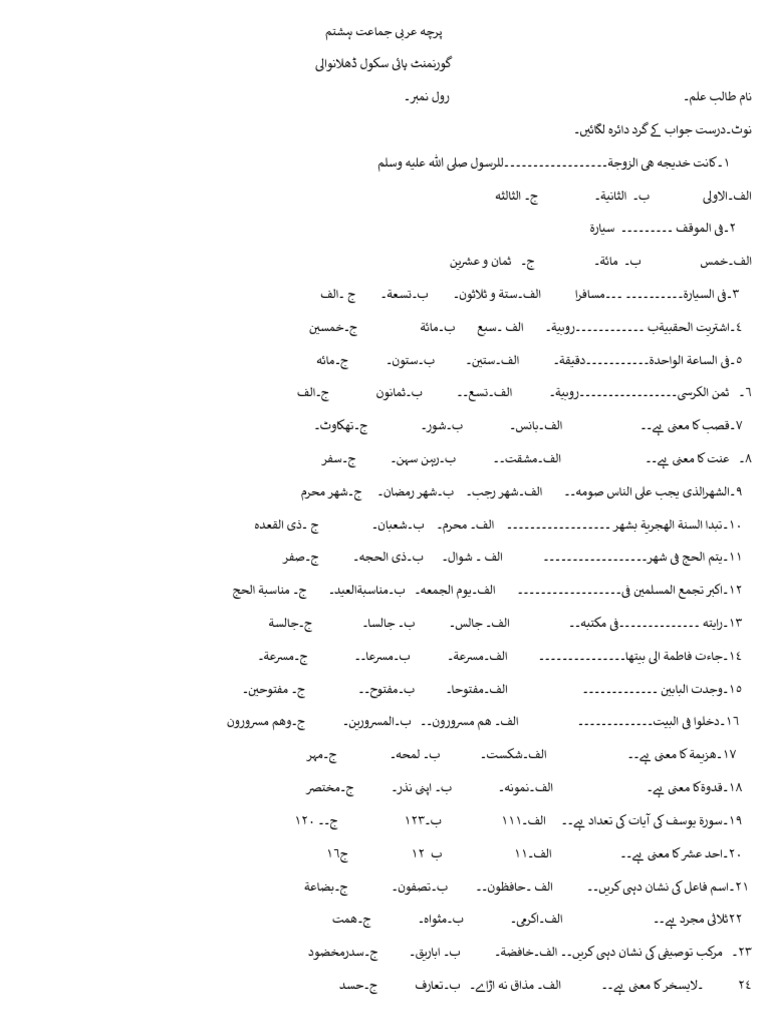 پرچہ عربی جماعت ہشتم
گورنمنٹ ہائی سکول ڈھلانوالی
نام طالب علم۔ رول نمبر۔
نوٹ۔درست جواب کے گرد دائرہ لگائیں۔
١۔کانت خدیجہ ھی الزوجة۔۔۔۔۔۔۔۔۔۔۔۔۔۔۔۔۔۔للرسول صلی اللہ علیہ وسلم
الف۔الاولی ب۔ الثانیة۔ ج۔ الثالثه
٢۔فی الموقف ۔۔۔۔۔۔۔۔۔ سیارة
الف۔خمس ب۔ مائة۔ ج۔ ثمان و عشرین
٣۔فی السیارة۔۔۔۔۔۔۔۔۔۔ ۔۔۔مسافرا الف۔ستة و ثلاثون۔ ب۔تسعة۔ ج ۔الف
٤۔اشتریت الحقیبةب ۔۔۔۔۔۔۔۔۔۔۔۔روبیة۔ الف ۔سبع ب۔مائة ج۔خمسین
٥۔فی الساعة الواحدة۔۔۔۔۔۔۔۔۔۔۔دقیقة۔ الف۔ستین۔ ب۔ستون۔ ج۔مائه
٦۔ ثمن الکرسی۔۔۔۔۔۔۔۔۔۔۔۔۔۔۔۔۔روبیة۔ الف۔تسع۔۔ ب۔ثمانون ج۔الف
٧۔قصب کا معنی ہے۔۔ الف۔بانس۔ ب۔شور۔ ج۔تھکاوٹ۔
٨۔ عنت کا معنی ہے۔۔ الف۔مشقت۔۔ ب۔رہن سہن۔ ج۔سفر
٩۔الشھرالذی یجب علی الناس صومه۔۔ الف۔شھر رجب۔ ب۔شھر رمضان۔ ج۔شھر محرم
١٠۔تبدا السنة الھجریة بشھر ۔۔۔۔۔۔۔۔۔۔۔۔۔۔۔۔۔ الف۔ محرم۔ ب۔شعبان۔ ج ۔ذی القعدہ
١١۔یتم الحج فی شھر۔۔۔۔۔۔۔۔۔۔۔۔۔۔۔۔۔۔ الف ۔ شوال۔ ب۔ذی الحجه۔ ج۔صفر
١٢۔اکبر تجمع المسلمین فی۔۔۔۔۔۔۔۔۔۔۔۔۔۔۔۔۔۔ الف۔یوم الجمعه۔ ب۔مناسبةالعید۔ ج۔ مناسبة الحج
١٣۔رایته ۔۔۔۔۔۔۔۔۔۔۔۔۔۔فی مکتبه۔۔ الف۔ جالس۔ ب۔ جالسا۔ ج۔جالسة
١٤۔جاءت فاطمة الی بیتھا۔۔۔۔۔۔۔۔۔۔۔۔۔۔۔ الف۔مسرعة۔ ب۔مسرعا۔۔ ج۔مسرعة۔
١٥۔وجدت البابین ۔۔۔۔۔۔۔۔۔۔۔۔۔ الف۔مفتوحا۔ ب۔مفتوح۔۔ ج۔ مفتوحین۔
١٦۔دخلوا فی البیت۔۔۔۔۔۔۔۔۔۔۔۔۔ الف۔ ھم مسرورون۔۔ ب۔المسرورین۔ ج۔وھم مسرورون
١٧۔ھزیمة کا معنی ہے۔۔ الف۔شکست۔ ب۔ لمحہ۔ ج۔مہر
١٨۔قدوةکا معنی ہے۔ الف۔نمونہ۔ ب۔ اپنی نذر۔ ج۔مختصر
١٩۔سورة یوسف کی آیات کی تعداد ہے۔۔ الف۔١١١ ب۔١٢٣ ج۔۔ ١٢٠
٢٠۔احد عشر کا معنی ہے۔۔ الف۔١١ ب ١٢ ج١٦
٢١۔اسم فاعل کی نشان دہی کریں۔۔ الف ۔حافظون۔۔ ب۔تصفون۔ ج۔بضاعة
٢٢ثلاثی مجرد ہے۔۔ الف۔اکرمی۔ ب۔مثواہ۔ ج۔ھمت
٢٣۔ مرکب توصیفی کی نشان دہی کریں۔۔ الف۔خافضة۔ ب۔ اباریق۔ ج۔سدرمخضود
٢٤ ۔لایسخر کا معنی ہے۔۔ الف۔ مذاق نہ اڑاے۔ ب۔تعارف ج۔حسد